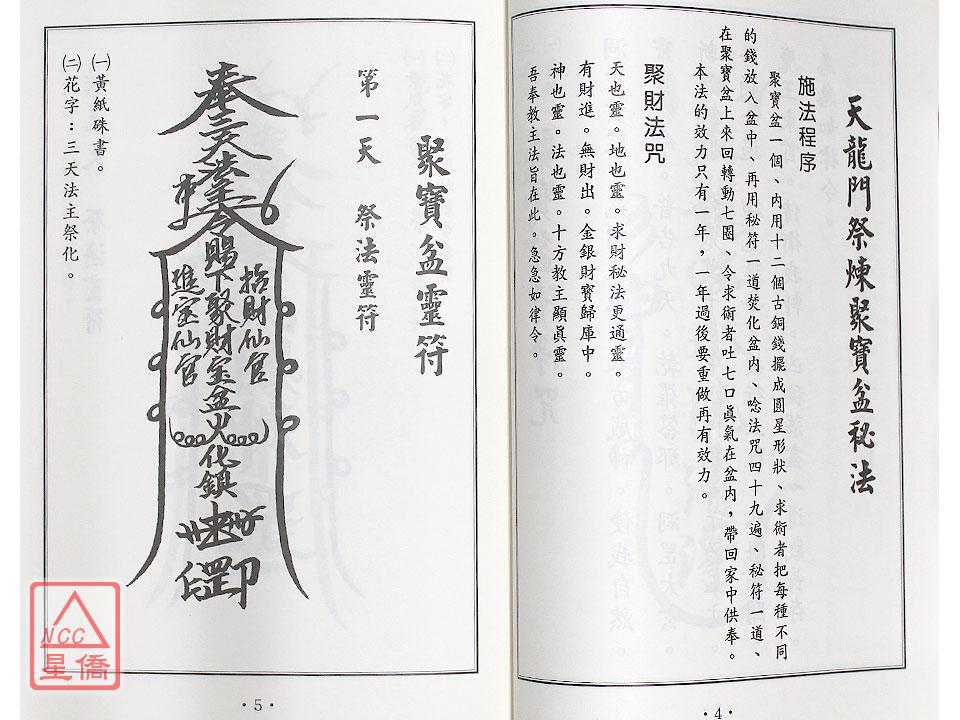 天龍門祭煉聚寶盆秘法
施法程序
聚寶盆一個、內用十二個古銅錢擺成圓星形狀、求術者把每種不同
的錢放入盆中、再用秘符一道焚化盆內、唸法咒四十九遍、秘符一道、
在聚寶盆上來回轉動七圈、令求術者吐七口眞氣在盆內，帶回家中供奉。
本法的效力只有一年，一年過後要重做再有效力。
聚財法咒
天也靈。地也靈。求財秘法更通靈。
有財進。無財出。金銀財寶歸庫中。
神也靈。法也靈。十方教主顯眞靈。
吾奉教主法旨在此。急急如律令。
·4·
聚寶盆靈符
第一天　祭法靈符
奉三天法主令賜下聚財宝盆火化鎮
招財仙官
進宝仙官
㈠黃紙硃書。
㈡花字：三天法主祭化。
·5·
NCC
星僑